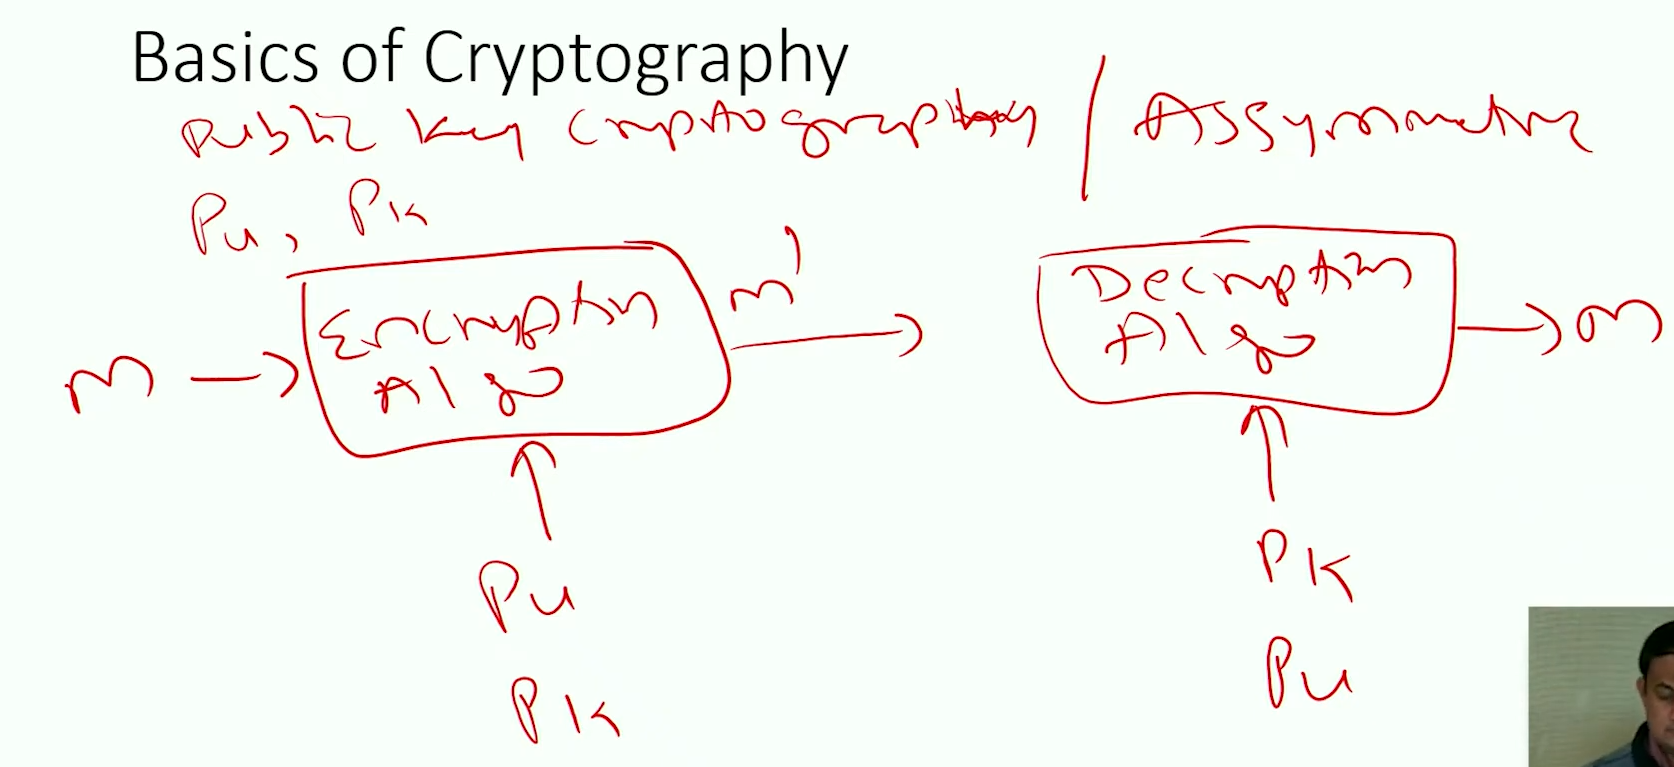 Basics of Cryptography
Public key cryptography / Assymmetric
Pu, Pk
Encryption
Algo
m
m'
Decryption
Algo
m
Pu
Pk
Pk
Pu